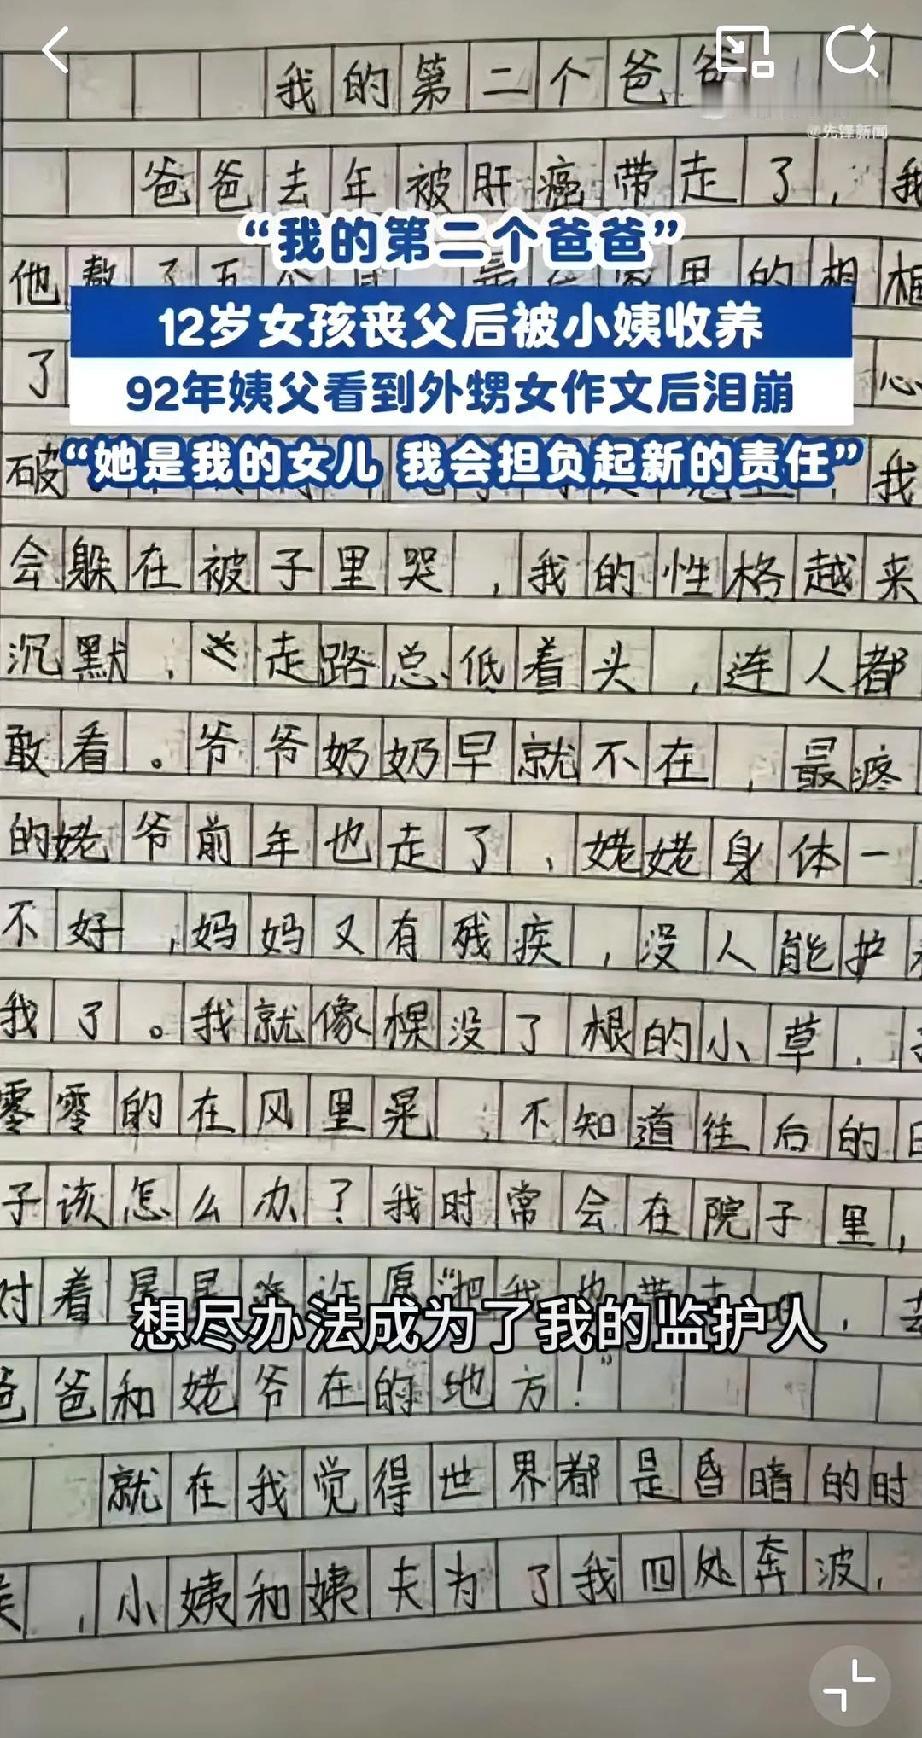 我的第二个爸爸
@先锋新闻
爸爸去年被肝癌带走了，我
“我的第二个爸爸”
他
里的相框
12岁女孩丧父后被小姨收养
了
心
92年姨父看到外甥女作文后泪崩
破
我
“她是我的女儿 我会担负起新的责任”
会躲在被子里哭，我的性格越来
沉默，走路总低着头，连人都
敢看。爷爷奶奶早就不在，最疼
的姥爷前年也走了，姥姥身体一
不好，妈妈又有残疾，没人能护
我了。我就像棵没了根的小草，
零零的在风里晃，不知道往后的日
子该怎么办？我时常会在院子里，
对着星星许愿“把我也带走吧，去
想尽办法成为了我的监护人
爸爸和姥爷在的地方！”
就在我觉得世界都是昏暗的时
候，小姨和姨夫为了我四处奔波，